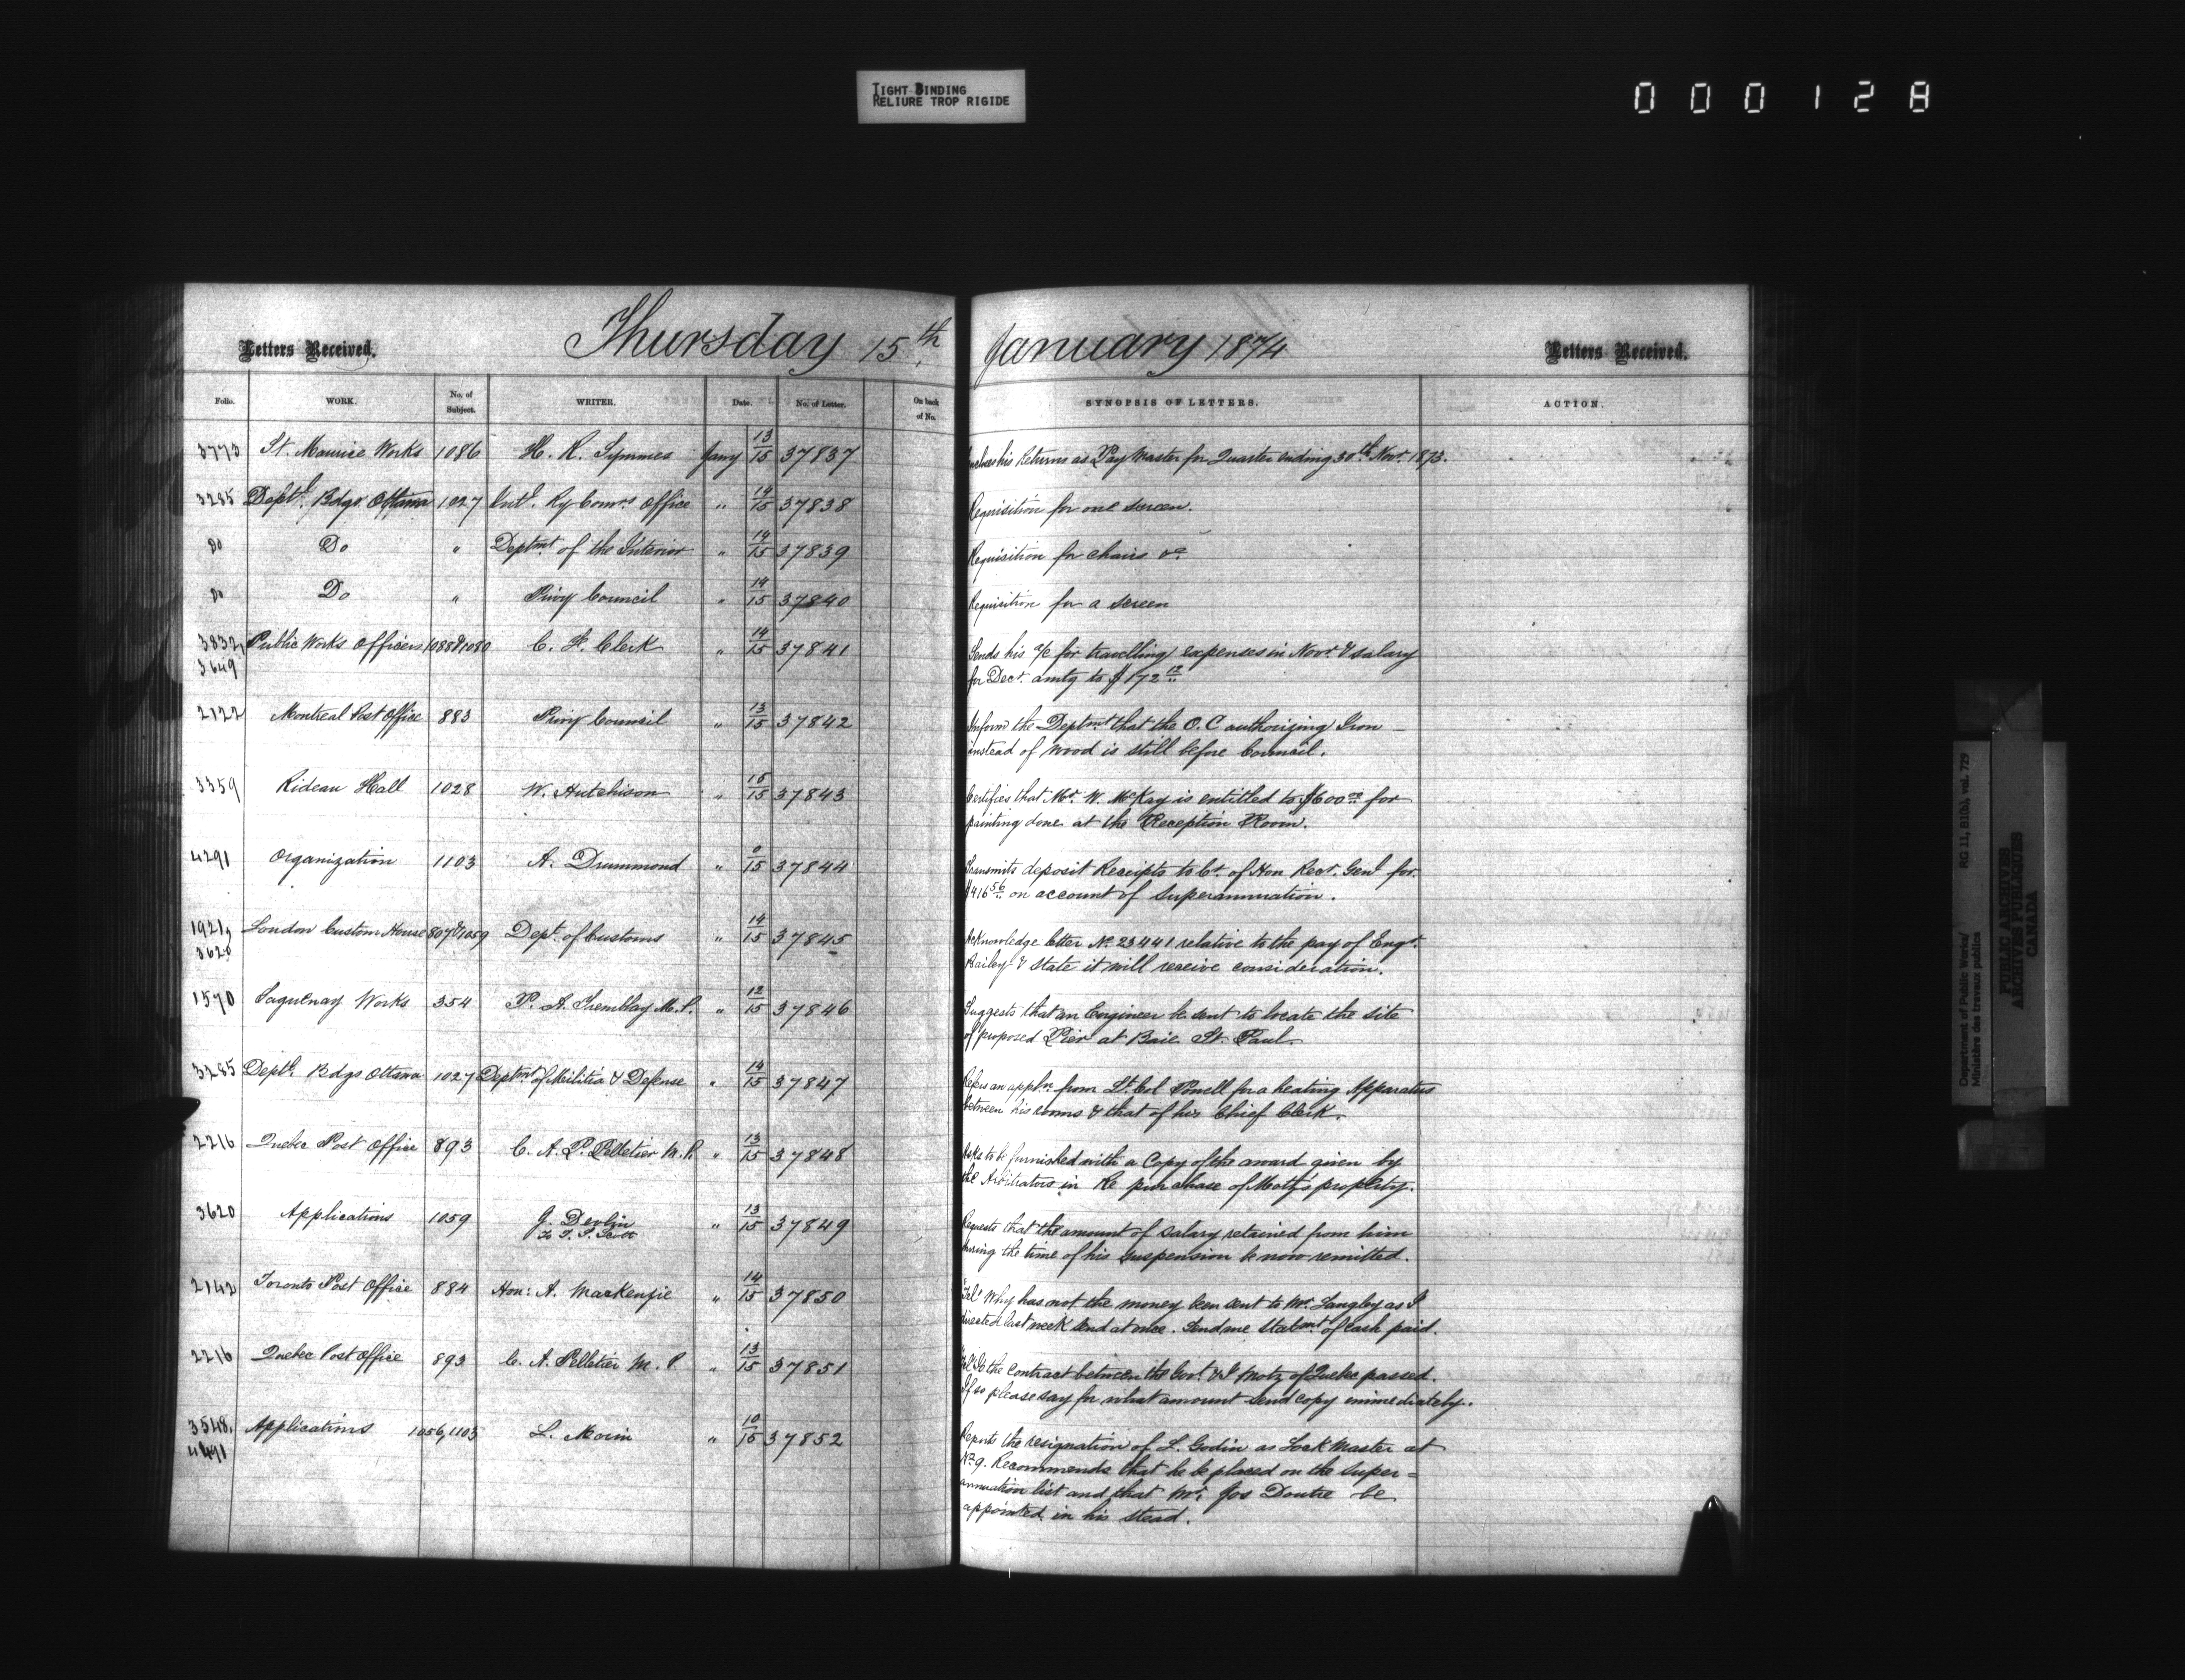 TIGHT BINDING
RELIURE TROP RIGIDE
000128
Letters Received.
Thursday 15th January 1874
Letters Received.
Folio. WORK. No. of Subject. WRITER. Date. No. of Letter. On back of No. SYNOPSIS OF LETTERS. ACTION.
3773 St. Maurice Works 1086 H. R. Symmes Jany 13/15 37837 Encloses his Returns as Pay Master for Quarter ending 30th Novr. 1873.
3285 Deptl. Bdgs Ottawa 1027 Intl. Ry Comrs. Office " 14/15 37838 Requisition for one screen.
Do Do " Deptmt of the Interior " 14/15 37839 Requisition for chairs &c
Do Do " Privy Council " 14/15 37840 Requisition for a screen
3832, Public Works Officers 1088&1080 C. F. Clerk " 14/15 37841 Sends his a/c for travelling expenses in Novr. & salary
3649 for Decr. amtg to $172 12
2122 Montreal Post Office 883 Privy Council " 13/15 37842 Inform the Deptmt that the O.C authorizing Iron
instead of wood is still before Council.
3359 Rideau Hall 1028 W. Hutchison " 15/15 37843 Certifies that Mr. W. McKay is entitled to $600 00 for
painting done at the Reception Room.
4291 Organization 1103 A. Drummond " 0/15 37844 Transmits deposit Receipts to Cr. of Hon Recr. Genl for
$416 56 on account of Superannuation.
1921, London Custom House 807&1059 Dept. of Customs " 14/15 37845 Acknowledge letter No. 23441 relative to the pay of Engr.
3620 Bailey & state it will receive consideration.
1570 Saguenay Works 354 P. A. Tremblay M.P. " 12/15 37846 Suggests that an Engineer be sent to locate the site
of proposed Pier at Baie St. Paul.
3285 Deptl. Bdgs Ottawa 1027 Deptmt of Militia & Defense " 14/15 37847 Refers an appln. from Lt. Col Powell for a heating Apparatus
between his rooms & that of his Chief Clerk.
2216 Quebec Post Office 893 C. A. P. Pelletier M.P. " 13/15 37848 Asks to be furnished with a Copy of the award given by
the Arbitrators in re purchase of Motz's property.
3620 Applications 1059 J. Devlin " 13/15 37849 Requests that the amount of salary retained from him
to T. S. Scott during the time of his suspension be now remitted.
2142 Toronto Post Office 884 Hon: A. Mackenzie " 14/15 37850 "Tel" Why has not the money been sent to Mr. Langley as I
directed last week Send at once. Send me Statmnt of Cash paid.
2216 Quebec Post Office 893 C. A. Pelletier M.P. " 13/15 37851 "Tel" Is the Contract between the Govt. & I Motz of Quebec passed.
If so please say for what amount send copy immediately.
3548, Applications 1056,1103 L. Morin " 10/15 37852 Reports the resignation of L. Godin as Lock Master at
4491 No. 9. Recommends that he be placed on the Super=
annuation list and that Mr. Jos Doutre be
appointed in his stead.
Department of Public Works/
Ministère des travaux publics
RG 11, B1(b), vol. 729
PUBLIC ARCHIVES
ARCHIVES PUBLIQUES
CANADA